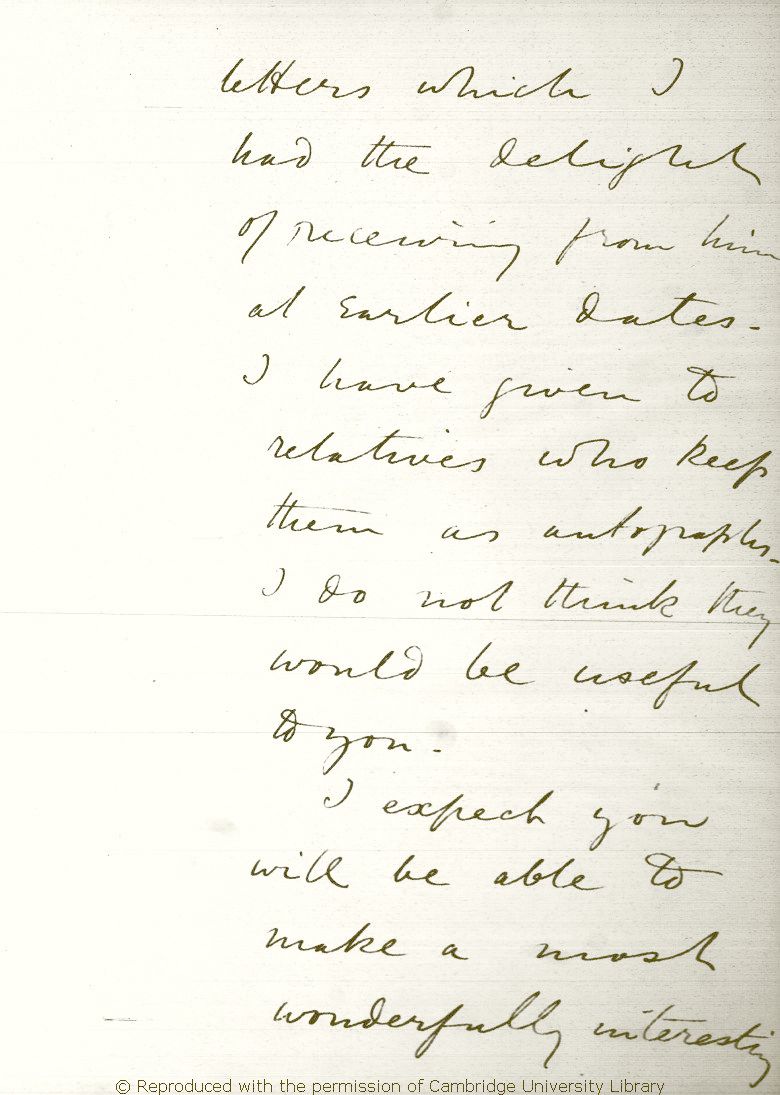 letters which I
had the delight
of receiving from him
at earlier dates -
I have given to
relatives who keep
them as autographs -
I do not think they
would be useful
to you -
I expect you
will be able to
make a most
wonderfully interesting
© Reproduced with the permission of Cambridge University Library